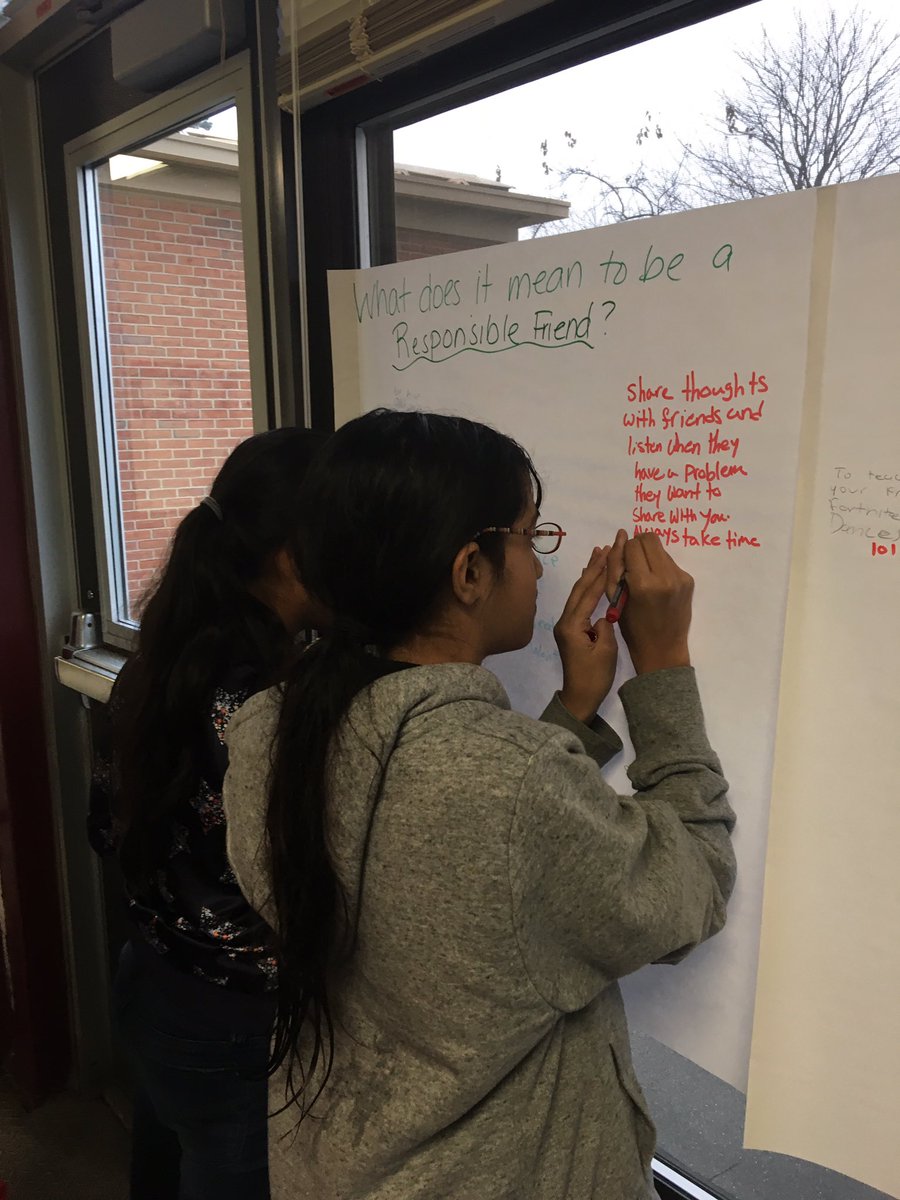 What does it mean to be a
Responsible Friend?
Share thoughts
with friends and
listen when they
have a problem
they want to
share with you.
Always take time
To
your
Fortnite
Dances
101